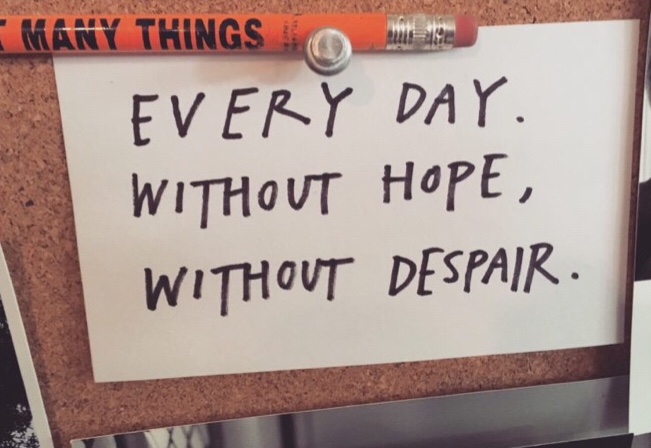 MANY THINGS
EVERY DAY.
WITHOUT HOPE,
WITHOUT DESPAIR.